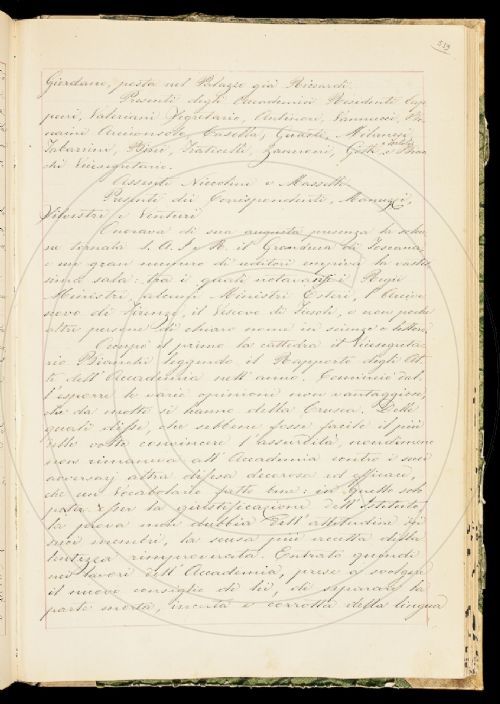 519
Giordano, posta nel Palazzo già Riccardi.
Presenti degli Accademici Residenti Cap-
poni, Valeriani Segretario, Antinori, Vannucci, 
Arciconsolo, Casella, Guasti, Milanesi,
Tabarrini, Bini, Fraticelli, Zannoni, Gotti, e Bian-
chi Vicesegretario.
Assenti Niccolini e Massetti
Presenti dei Corrispondenti, Manuzzi,
Silvestri e Venturi
Onorava di sua augusta presenza la solen-
ne tornata S. A. I. e R. il Granduca di Toscana
e un gran numero di uditori empiva la vastis-
sima sala: tra i quali notavansi i Regii
Ministri, alcuni Ministri Esteri, l'Arcive-
scovo di Firenze, il Vescovo di Fiesole, e non poche
altre persone di chiaro nome in scienze e lettere.
Occupò il primo la cattedra il Vicesegreta-
rio Bianchi leggendo il Rapporto degli At-
ti dell'Accademia nell'anno. Cominciò dal-
l'esporre le varie opinioni non vantaggiose,
che da molti si hanno della Crusca. Delle
quali disse, che sebbene fosse facile il più
delle volte convincere l'assurdità, nondimeno
non rimaneva all'Accademia contro i suoi
avversarj altra difesa decorosa ed efficace,
che un Vocabolario fatto bene: in questo solo
posta per la giustificazione dell'Istituto,
la prova non dubbia dell'attitudine di
suoi membri, la scusa più accetta della
lentezza rimproverata. Entrato quindi
nei lavori dell'Accademia, prese a svolgere
il nuovo consiglio di lei, di separare la
parte morta, incerta e corrotta della lingua